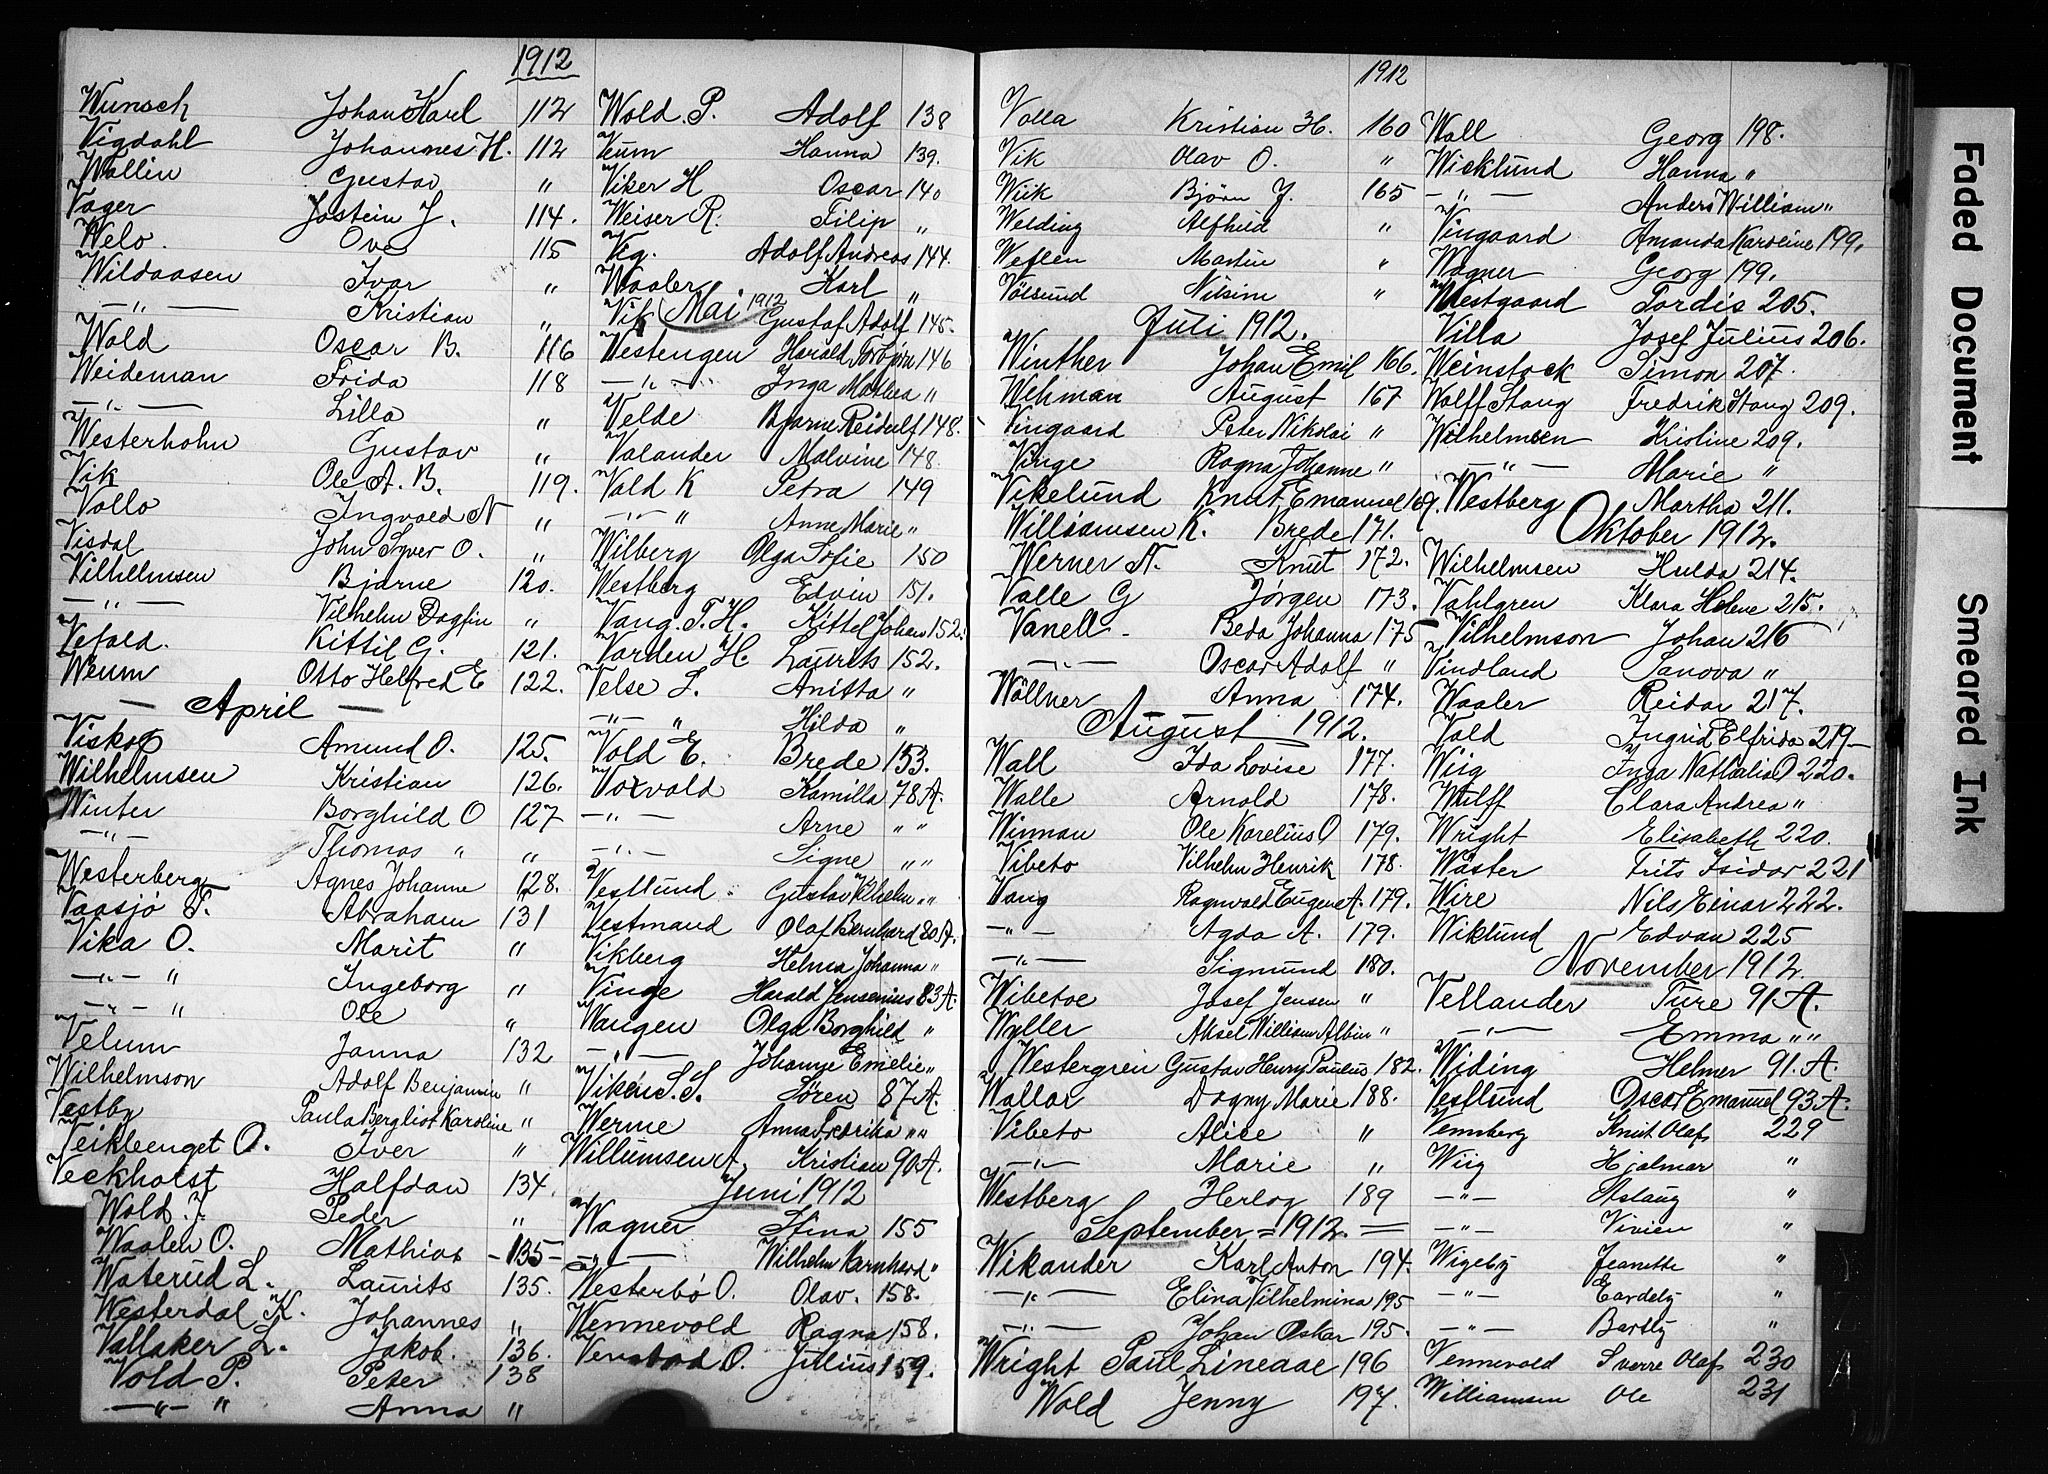 1912
Wunsch Johan Karl 112
Vigdahl Johannes H. 112
Wallin Gustav "
Vager Jostein J. 114.
Welo. Ove 115
Wildaasen Ivar "
—"— Kristian "
Wold Oscar B. 116
Weideman Frida 118
—"— Lilla "
Westerholm Gustav "
Vik Ole A. B. 119.
Vollo Ingvald N "
Visdal John Syver O. "
Vilhelmsen Bjarne 120.
—"— Vilhelm Dagfin "
Vefald. Kittil G. 121.
Weum Otto Helfred E 122.
— April —
Viskop Amund O. 125.
Wilhelmsen Kristian 126.
Winter Borghild O 127
—"— Thomas " "
Westerberg Agnes Johanne 128.
Vaasjø T. Abraham 131
Vika O. Marit "
—"— " Ingeborg "
—"— " Ole "
Velum Janna 132
Wilhelmson Adolf Benjamin "
Vestby Paula Bergliot Karoline "
Veikleenget O. Iver "
Veckholst Halfdan 134.
Wold J. Peder "
Waalen O. Mathias –135–
Waterud L. Laurits 135.
Westerdal K. Johannes "
Vallaker L. Jakob. 136.
Vold P. Peter 138
—"— " Anna "
Wold. P. Adolf 138
Veum Hanna 139.
Viker H Oscar 140
Weiser R. Filip "
Vig. Adolf Andreas 144.
Waaler. Karl "
Mai 1912
Vik Gustaf Adolf 145.
Westengen Harald Torbjørn 146
—"— Inga Mathea "
Velde Bjarne Reidulf 148.
Valander Malvine 148.
Vold K Petra 149
—"— " Anne Marie "
Wilberg Olga Sofie 150
Westberg Edvin 151.
Vang. T. H. Kittel Johan 152.
Varden H. Laurits 152.
Velse L. Anitta "
—"— " Hilda "
Vold E. Brede 153.
Voxvold Kamilla 78 A.
—"— Arne " "
—"— Signe " "
Vestlund. Gustav Vilhelm " "
Vestmand Olaf Bernhard 80 A.
Vikberg Helma Johanna "
Vinge Harald Jensenius 83 A.
Wangen Olga Borghild "
—"— Johanne Emelie "
Viken S. S. Søren 87 A.
Werme Anna Fredrika " "
Willumsen A. Kristian 90 A.
Juni 1912
Wagner Stina 155
—"— Wilhelm Barnhard "
Westerbø O. Olav. 158.
Wennevold Ragna 158.
Venstad O. Julius 159.
1912
Volla Kristian H. 160
Vik Olav O. "
Wiik Bjørn J. 165
Welding Alfhild "
Weflen Martin "
Vølsund Nilsine "
Juli 1912.
Winther Johan Emil 166.
Wehman August 167
Vingaard Peter Nikolai "
Vinge Ragna Johanne "
Vikelund Knut Emanuel 169.
Williamsen K. Brede 171.
Werner A. Knut 172.
Valle G Jørgen 173.
Vanell – Beda Johanna 175
—"— Oscar Adolf "
Wöllner Anna 174.
August 1912.
Wall Ida Lovise 177.
Walle Arnold 178.
Winnan Ole Karelius O 179.
Vibeto Vilhelm Henrik 178.
Vang Ragnvald Eugen A. 179.
—"— Agda A. 179.
—"— Sigmund 180.
Wibetoe Josef Jensen "
Wyller Aksel William Albin "
Westergren Gustav Henry Paulus 182.
Wallar Dagny Marie 188.
Vibeto Alice "
—"— Marie "
Westberg Herlog 189
September = 1912. =
Wikander Karl Anton 194.
—"— Elina Vilhelmina 195
—"— Johan Oskar 195.
Wright Paul Lineaae 196
Wold Jenny 197.
Wall Georg 198.
Wicklund Hanna "
—"— Anders William "
Vingaard Amanda Karoline 199.
Wagner Georg 199.
Westgaard Tordis 205.
Villa Josef Julius 206.
Weinstock Simon 207.
Wolff Stang Fredrik Stang 209.
Wilhelmsen Kristine 209.
—"— Marie "
Westberg Martha 211.
Oktober 1912.
Wilhelmsen Hulda 214.
Vahlgren Klara Helene 215.
Vilhelmson Johan 216
Vindland Sanova "
Waaler Reidar 217.
Vold Ingrid Elfrida 219–
Wiig Inga Nathalia O 220.
Wulff Clara Andrea "
Wright Elisabeth 220.
Wäster Frits Isidor 221
Wire Nils Einar 222.
Wiklund Edvan 225
November 1912.
Vellander Ture 91 A.
—"— Emma " "
Widing Helmer 91. A.
Vestlund Oscar Emanuel 93 A.
Vennberg Knut Olaf 229
Wiig Hjalmar "
—"— Aslaug "
—"— Vivien "
Wigeby Jeanette "
—"— Eardely "
—"— Bartly "
Vennevold Sverre Olaf 230
Williamsen Ole 231
Faded Document
Smeared Ink